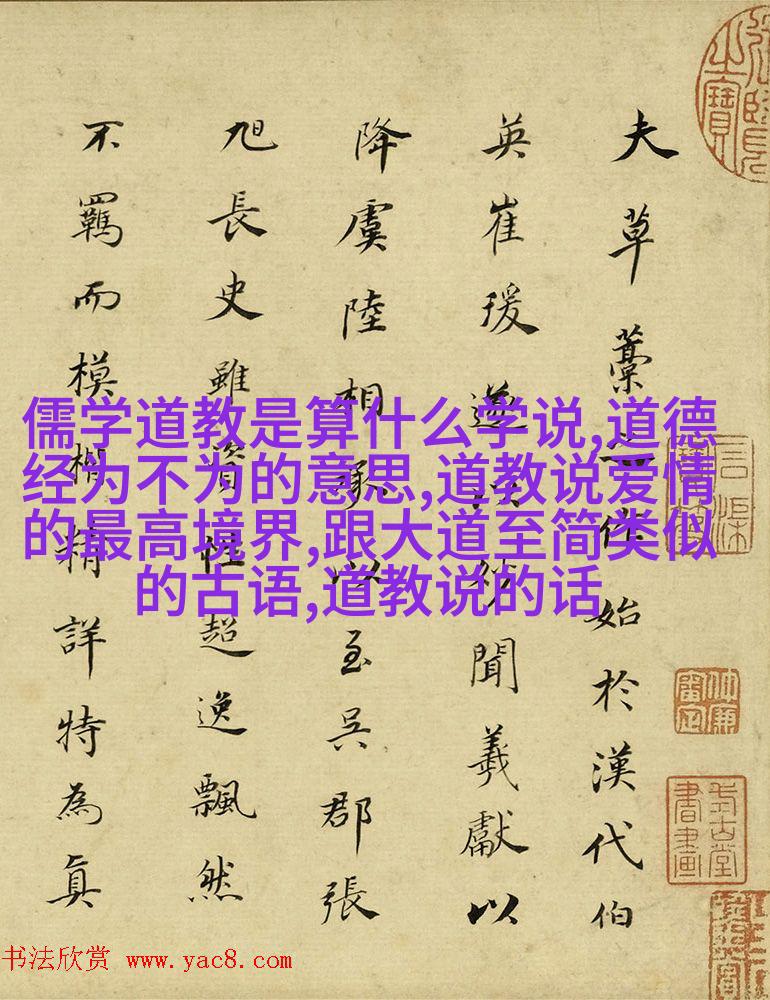 夫草藁之作始於漢代伯
英崔瑗遂以妙聞羲獻以
降虞陸相承以至吳郡張
旭長史雖資性超逸飄然
不羈而模楷精詳特為真
儒学道教是算什么学说,道德
经为不为的意思,道教说爱情
的最高境界,跟大道至简类似
的古语,道教说的话
书法欣赏 www.yac8.com